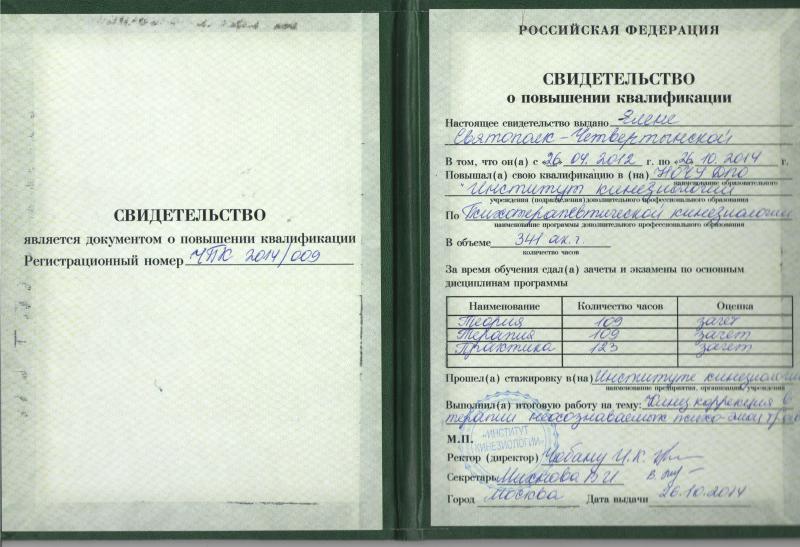 СВИДЕТЕЛЬСТВО
является документом о повышении квалификации
Регистрационный номер ЧПК 2014/009
РОССИЙСКАЯ ФЕДЕРАЦИЯ
СВИДЕТЕЛЬСТВО
о повышении квалификации
Настоящее свидетельство выдано Елене
Святополк-Четвертынской
В том, что он(а) с «26» 04. 2012 г. по «26» 10. 2014 г.
Повышал(а) свою квалификацию в (на) НОЧУ ДПО
наименование образовательного
"Институт кинезиологии"
учреждения (подразделения) дополнительного профессионального образования
По Психотерапевтической кинезиологии
наименование программы дополнительного профессионального образования
В объеме 341 ак.г.
количество часов
За время обучения сдал(а) зачеты и экзамены по основным
дисциплинам программы
Наименование Количество часов Оценка
Теория 109 зачет
Терапия 109 зачет
Практика 123 зачет
Прошел(а) стажировку в(на) Институте кинезиологии
наименование предприятия, организации, учреждения
Выполнил(а) итоговую работу на тему: Кинез коррекция в
терапии неосознаваемых психо-эмоц
«ИНСТИТУТ
КИНЕЗИОЛОГИИ»
М.П.
Ректор (директор) Чобану И.К.
Секретарь В И
Город Москва Дата выдачи 26.10.2014